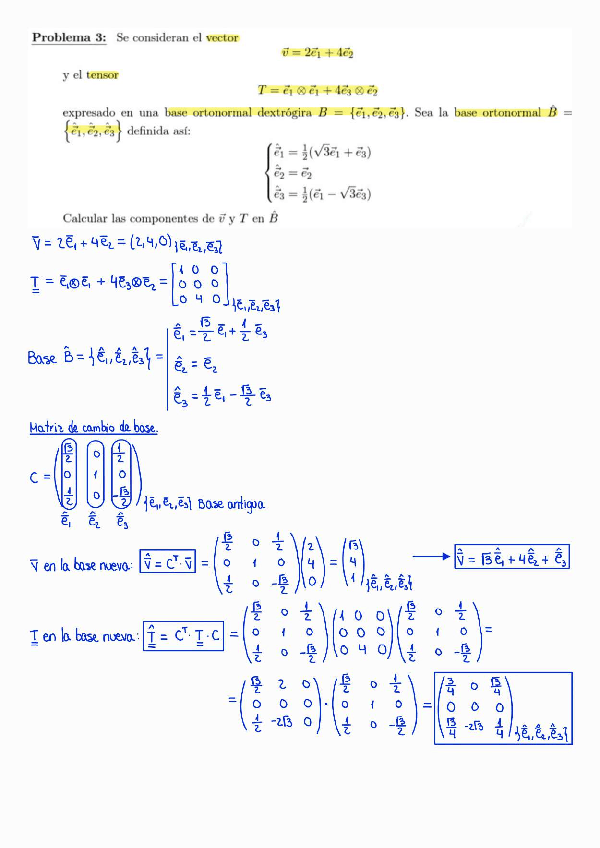 Problema 3: Se consideran el vector
$\vec{v} = 2\vec{e}_1 + 4\vec{e}_2$
y el tensor
$T = \vec{e}_1 \otimes \vec{e}_1 + 4\vec{e}_3 \otimes \vec{e}_2$
expresado en una base ortonormal dextrógira $B = \{\vec{e}_1, \vec{e}_2, \vec{e}_3\}$. Sea la base ortonormal $\hat{B} =$
$\{\hat{\vec{e}}_1, \hat{\vec{e}}_2, \hat{\vec{e}}_3\}$ definida así:
$\begin{cases} \hat{\vec{e}}_1 = \frac{1}{2}(\sqrt{3}\vec{e}_1 + \vec{e}_3) \\ \hat{\vec{e}}_2 = \vec{e}_2 \\ \hat{\vec{e}}_3 = \frac{1}{2}(\vec{e}_1 - \sqrt{3}\vec{e}_3) \end{cases}$
Calcular las componentes de $\vec{v}$ y $T$ en $\hat{B}$
$\bar{v} = 2\bar{e}_1 + 4\bar{e}_2 = (2,4,0)_{\{\bar{e}_1, \bar{e}_2, \bar{e}_3\}}$
$\underline{\underline{T}} = \bar{e}_1 \otimes \bar{e}_1 + 4\bar{e}_3 \otimes \bar{e}_2 = \begin{bmatrix} 1 & 0 & 0 \\ 0 & 0 & 0 \\ 0 & 4 & 0 \end{bmatrix}_{\{\bar{e}_1, \bar{e}_2, \bar{e}_3\}}$
Base $\hat{B} = \{\hat{\bar{e}}_1, \hat{\bar{e}}_2, \hat{\bar{e}}_3\} = \left| \begin{array}{l} \hat{\bar{e}}_1 = \frac{\sqrt{3}}{2}\bar{e}_1 + \frac{1}{2}\bar{e}_3 \\ \hat{\bar{e}}_2 = \bar{e}_2 \\ \hat{\bar{e}}_3 = \frac{1}{2}\bar{e}_1 - \frac{\sqrt{3}}{2}\bar{e}_3 \end{array} \right.$
Matriz de cambio de base.
$C = \begin{pmatrix} \frac{\sqrt{3}}{2} & 0 & \frac{1}{2} \\ 0 & 1 & 0 \\ \frac{1}{2} & 0 & -\frac{\sqrt{3}}{2} \end{pmatrix}_{\{\bar{e}_1, \bar{e}_2, \bar{e}_3\}}$ Base antigua
$\hat{\bar{e}}_1$ $\hat{\bar{e}}_2$ $\hat{\bar{e}}_3$
$\bar{v}$ en la base nueva: $\hat{\bar{v}} = C^T \cdot \bar{v}$ $= \begin{pmatrix} \frac{\sqrt{3}}{2} & 0 & \frac{1}{2} \\ 0 & 1 & 0 \\ \frac{1}{2} & 0 & -\frac{\sqrt{3}}{2} \end{pmatrix} \begin{pmatrix} 2 \\ 4 \\ 0 \end{pmatrix} = \begin{pmatrix} \sqrt{3} \\ 4 \\ 1 \end{pmatrix}_{\{\hat{\bar{e}}_1, \hat{\bar{e}}_2, \hat{\bar{e}}_3\}}$ → $\hat{\bar{v}} = \sqrt{3}\hat{\bar{e}}_1 + 4\hat{\bar{e}}_2 + \hat{\bar{e}}_3$
$\underline{\underline{T}}$ en la base nueva: $\hat{\underline{\underline{T}}} = C^T \cdot \underline{\underline{T}} \cdot C$ $= \begin{pmatrix} \frac{\sqrt{3}}{2} & 0 & \frac{1}{2} \\ 0 & 1 & 0 \\ \frac{1}{2} & 0 & -\frac{\sqrt{3}}{2} \end{pmatrix} \begin{pmatrix} 1 & 0 & 0 \\ 0 & 0 & 0 \\ 0 & 4 & 0 \end{pmatrix} \begin{pmatrix} \frac{\sqrt{3}}{2} & 0 & \frac{1}{2} \\ 0 & 1 & 0 \\ \frac{1}{2} & 0 & -\frac{\sqrt{3}}{2} \end{pmatrix} =$
$= \begin{pmatrix} \frac{\sqrt{3}}{2} & 2 & 0 \\ 0 & 0 & 0 \\ \frac{1}{2} & -2\sqrt{3} & 0 \end{pmatrix} \cdot \begin{pmatrix} \frac{\sqrt{3}}{2} & 0 & \frac{1}{2} \\ 0 & 1 & 0 \\ \frac{1}{2} & 0 & -\frac{\sqrt{3}}{2} \end{pmatrix} = \begin{pmatrix} \frac{3}{4} & 0 & \frac{\sqrt{3}}{4} \\ 0 & 0 & 0 \\ \frac{\sqrt{3}}{4} & -2\sqrt{3} & \frac{1}{4} \end{pmatrix}_{\{\hat{\bar{e}}_1, \hat{\bar{e}}_2, \hat{\bar{e}}_3\}}$